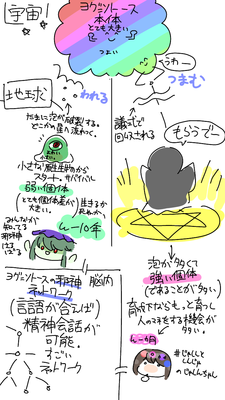 宇宙!
ヨグ=ソトース
本体
とても大きい
つよい
うわー
つまむ
地球
われる
たまに泡が破裂する。
どこかの星に流れつく。
儀式で
回収される
もらうでー
おおい
小さい
小さな原生生物から
スタート。サバイバル
弱い個体
とても個体差が
大きい。
生きるか
死ぬか
ん〜10年
みんなが
知ってる
邪神
は
泡が多くて
強い個体
(であることが多い)
育成下ならもっと育つし
人のマネをする機会が
多い。
ん〜4月
ヨグ=ソトースの邪神
ネットワーク
脳内
(言語が合えば)
精神会話が
可能。
すごい
ネットワーク
#じゃしんと
しんじゃ
のじゃんちゃん